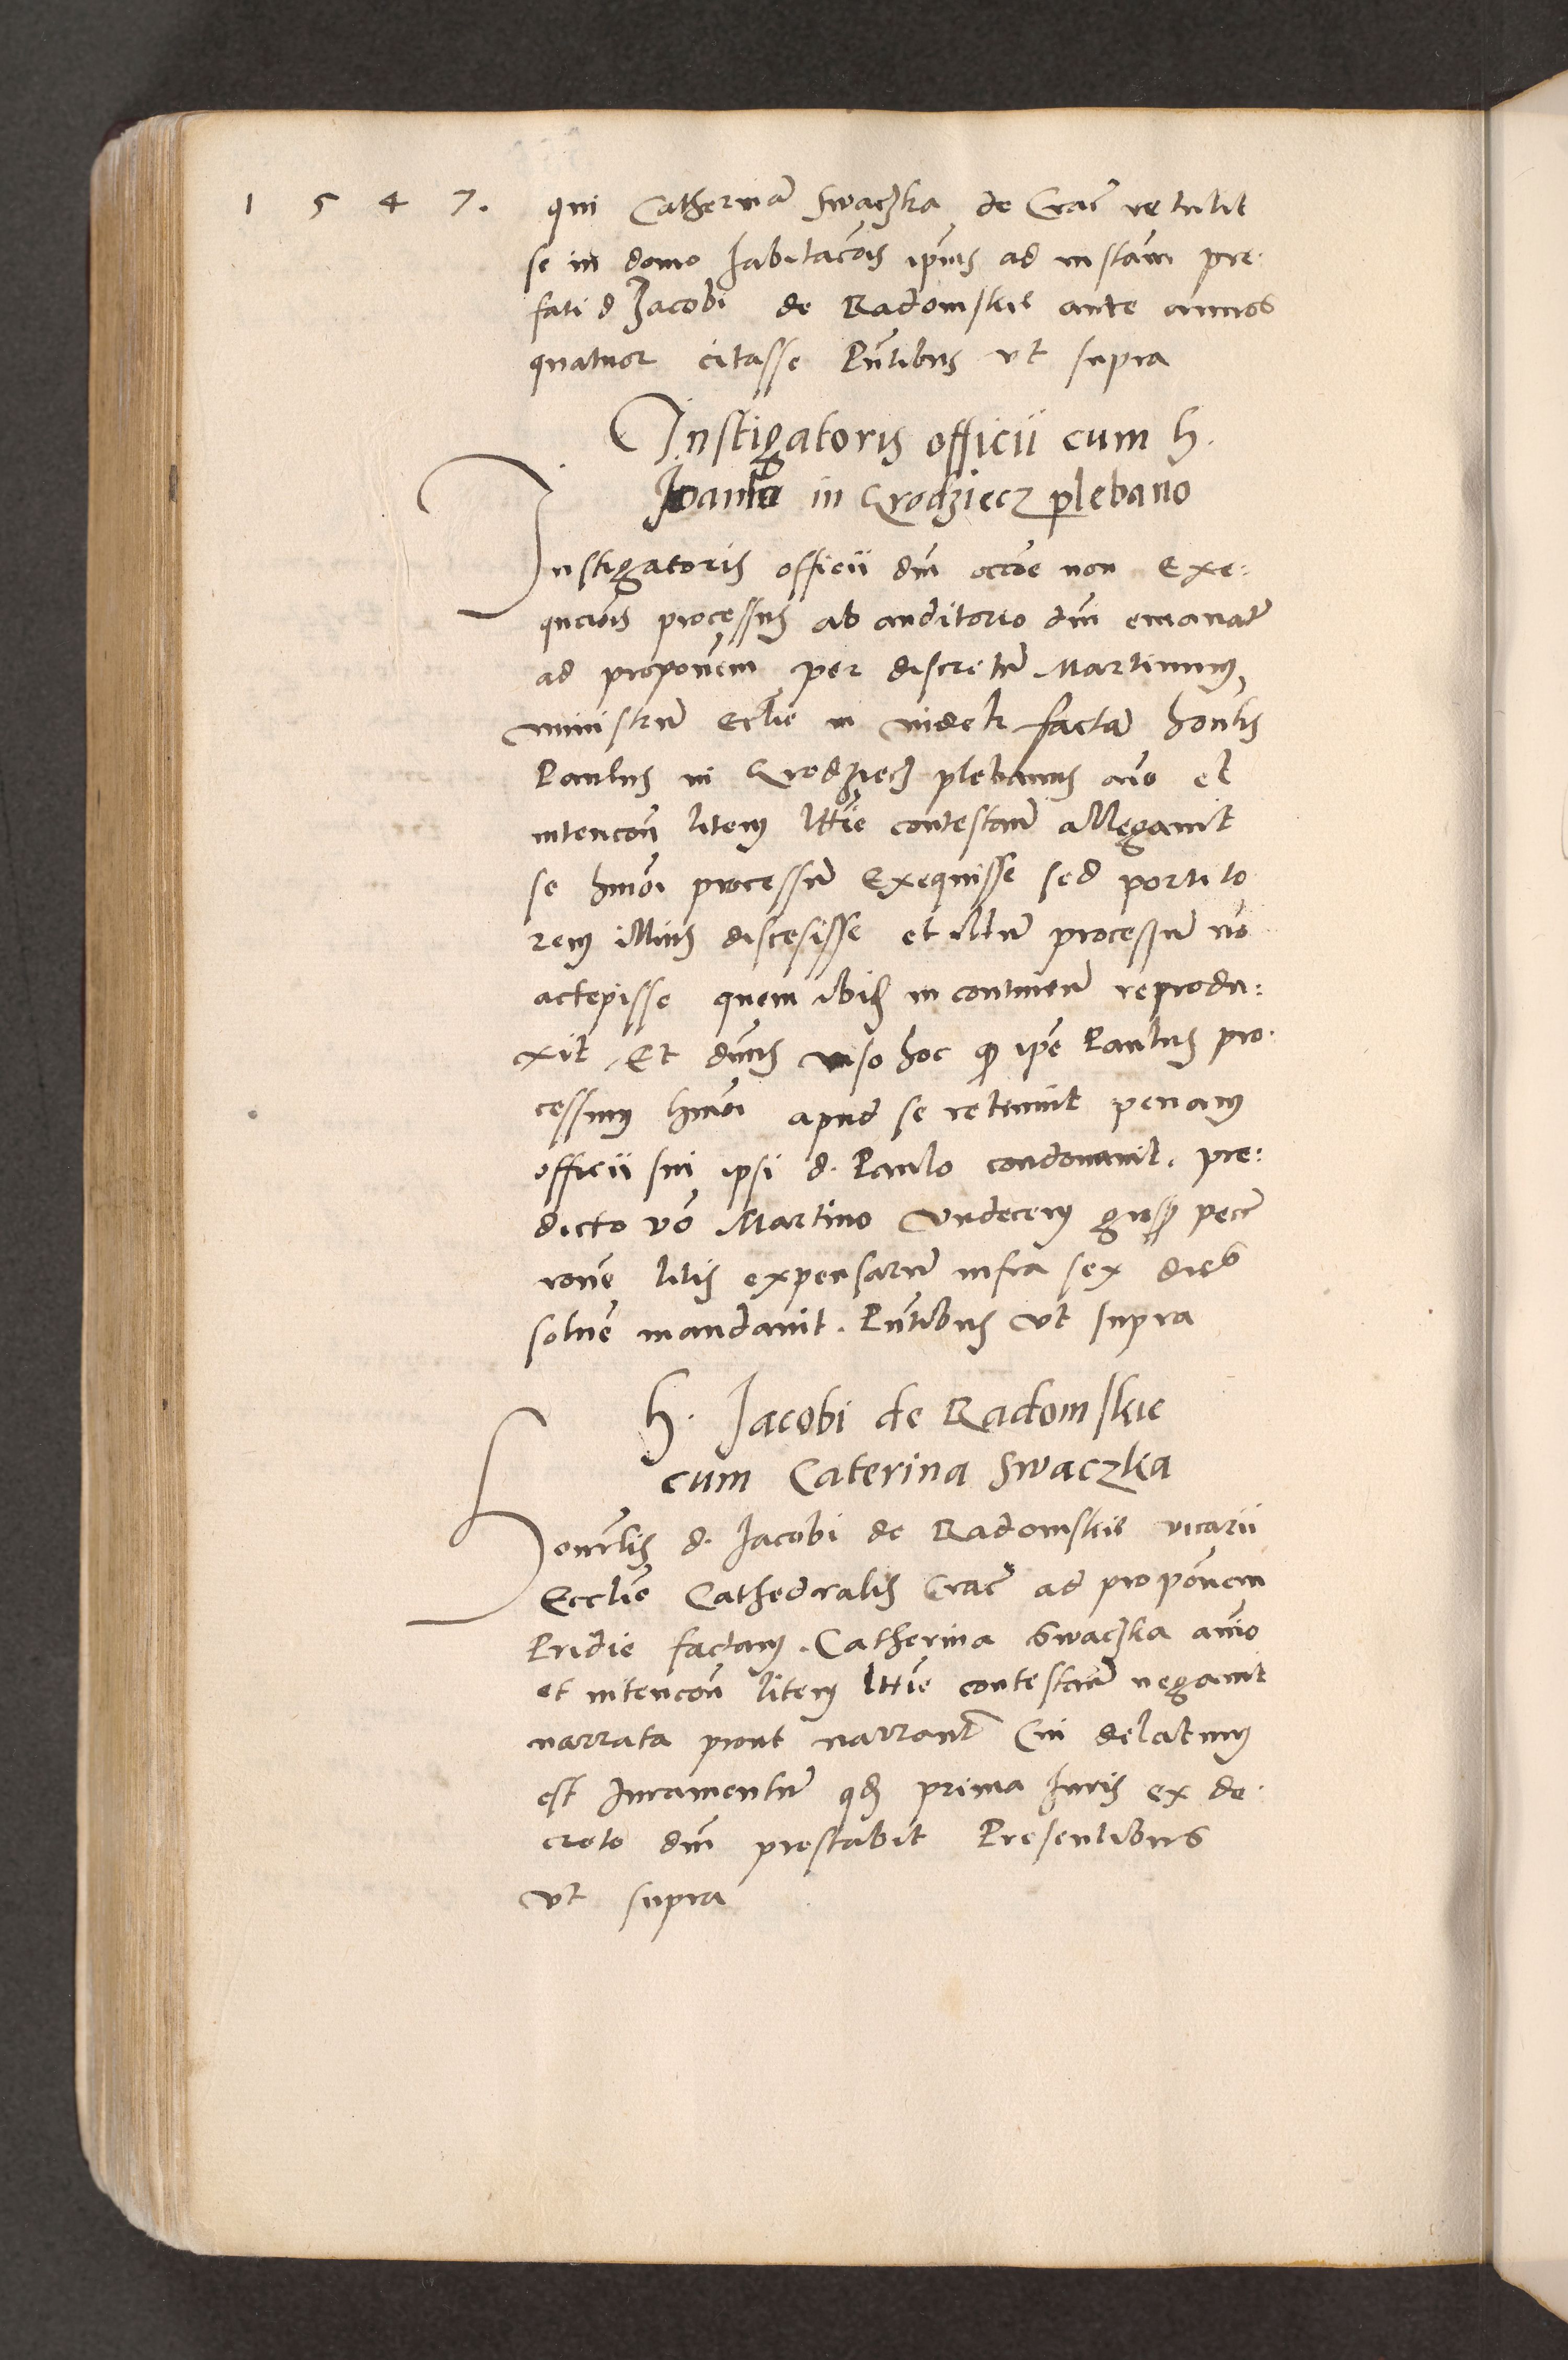 1 5 4 7. qui Catherinā Swaczka de Crac̄ retulit
se in domo habitac̄ois ip̄ius ad instān pre-
fati d Jacobi de Radomskie ante annos
quatuor citasse Pn̄tibus vt supra
Instigatoris officii cum h.
in Grodziecz plebano
Instigatoris officii dn̄i occ̄oe non exe-
quc̄ois processus ab auditorio dn̄i emanatī
ad propōnem per discretū Martinum
ministrū eccl̄ie in facta honl̄is
Paulus in Grodziecz plebanus ān̄o et
intenc̄on̄ litem l̄ttīe contestan̄ allegavit
se hmōi processū exequisse sed portito
rem illius discesisse et illum processū nō
accepisse quem ibid̄ in continen̄ reprodu-
xit Et dn̄us viso hoc q̄ ip̄e Paulus pro-
cessum hmōi apud se retinuit penam
officii sui ipsi d. Paulo condonavit. pre-
dicto vō Martino Undecem gross pecc̄
rōne litis expensarū infra sex dieb
solvē mandavit. Pn̄tibus vt supra
h. Jacobi de Radomskie
cum Caterina Swaczka
Honorl̄is d. Jacobi de Radomskie vicarii
Eccl̄ie Cathedralis Crac̄ ad propōnem
Pridie factam. Catherina Swaczka an̄io
et intenc̄on̄ litem l̄ttīe contestan̄ negavit
narrata prout narrant̄ Cui delatum
est Juramentū qd̄ prima Juris ex de-
creto dn̄i prestabit Presentibus
vt supra